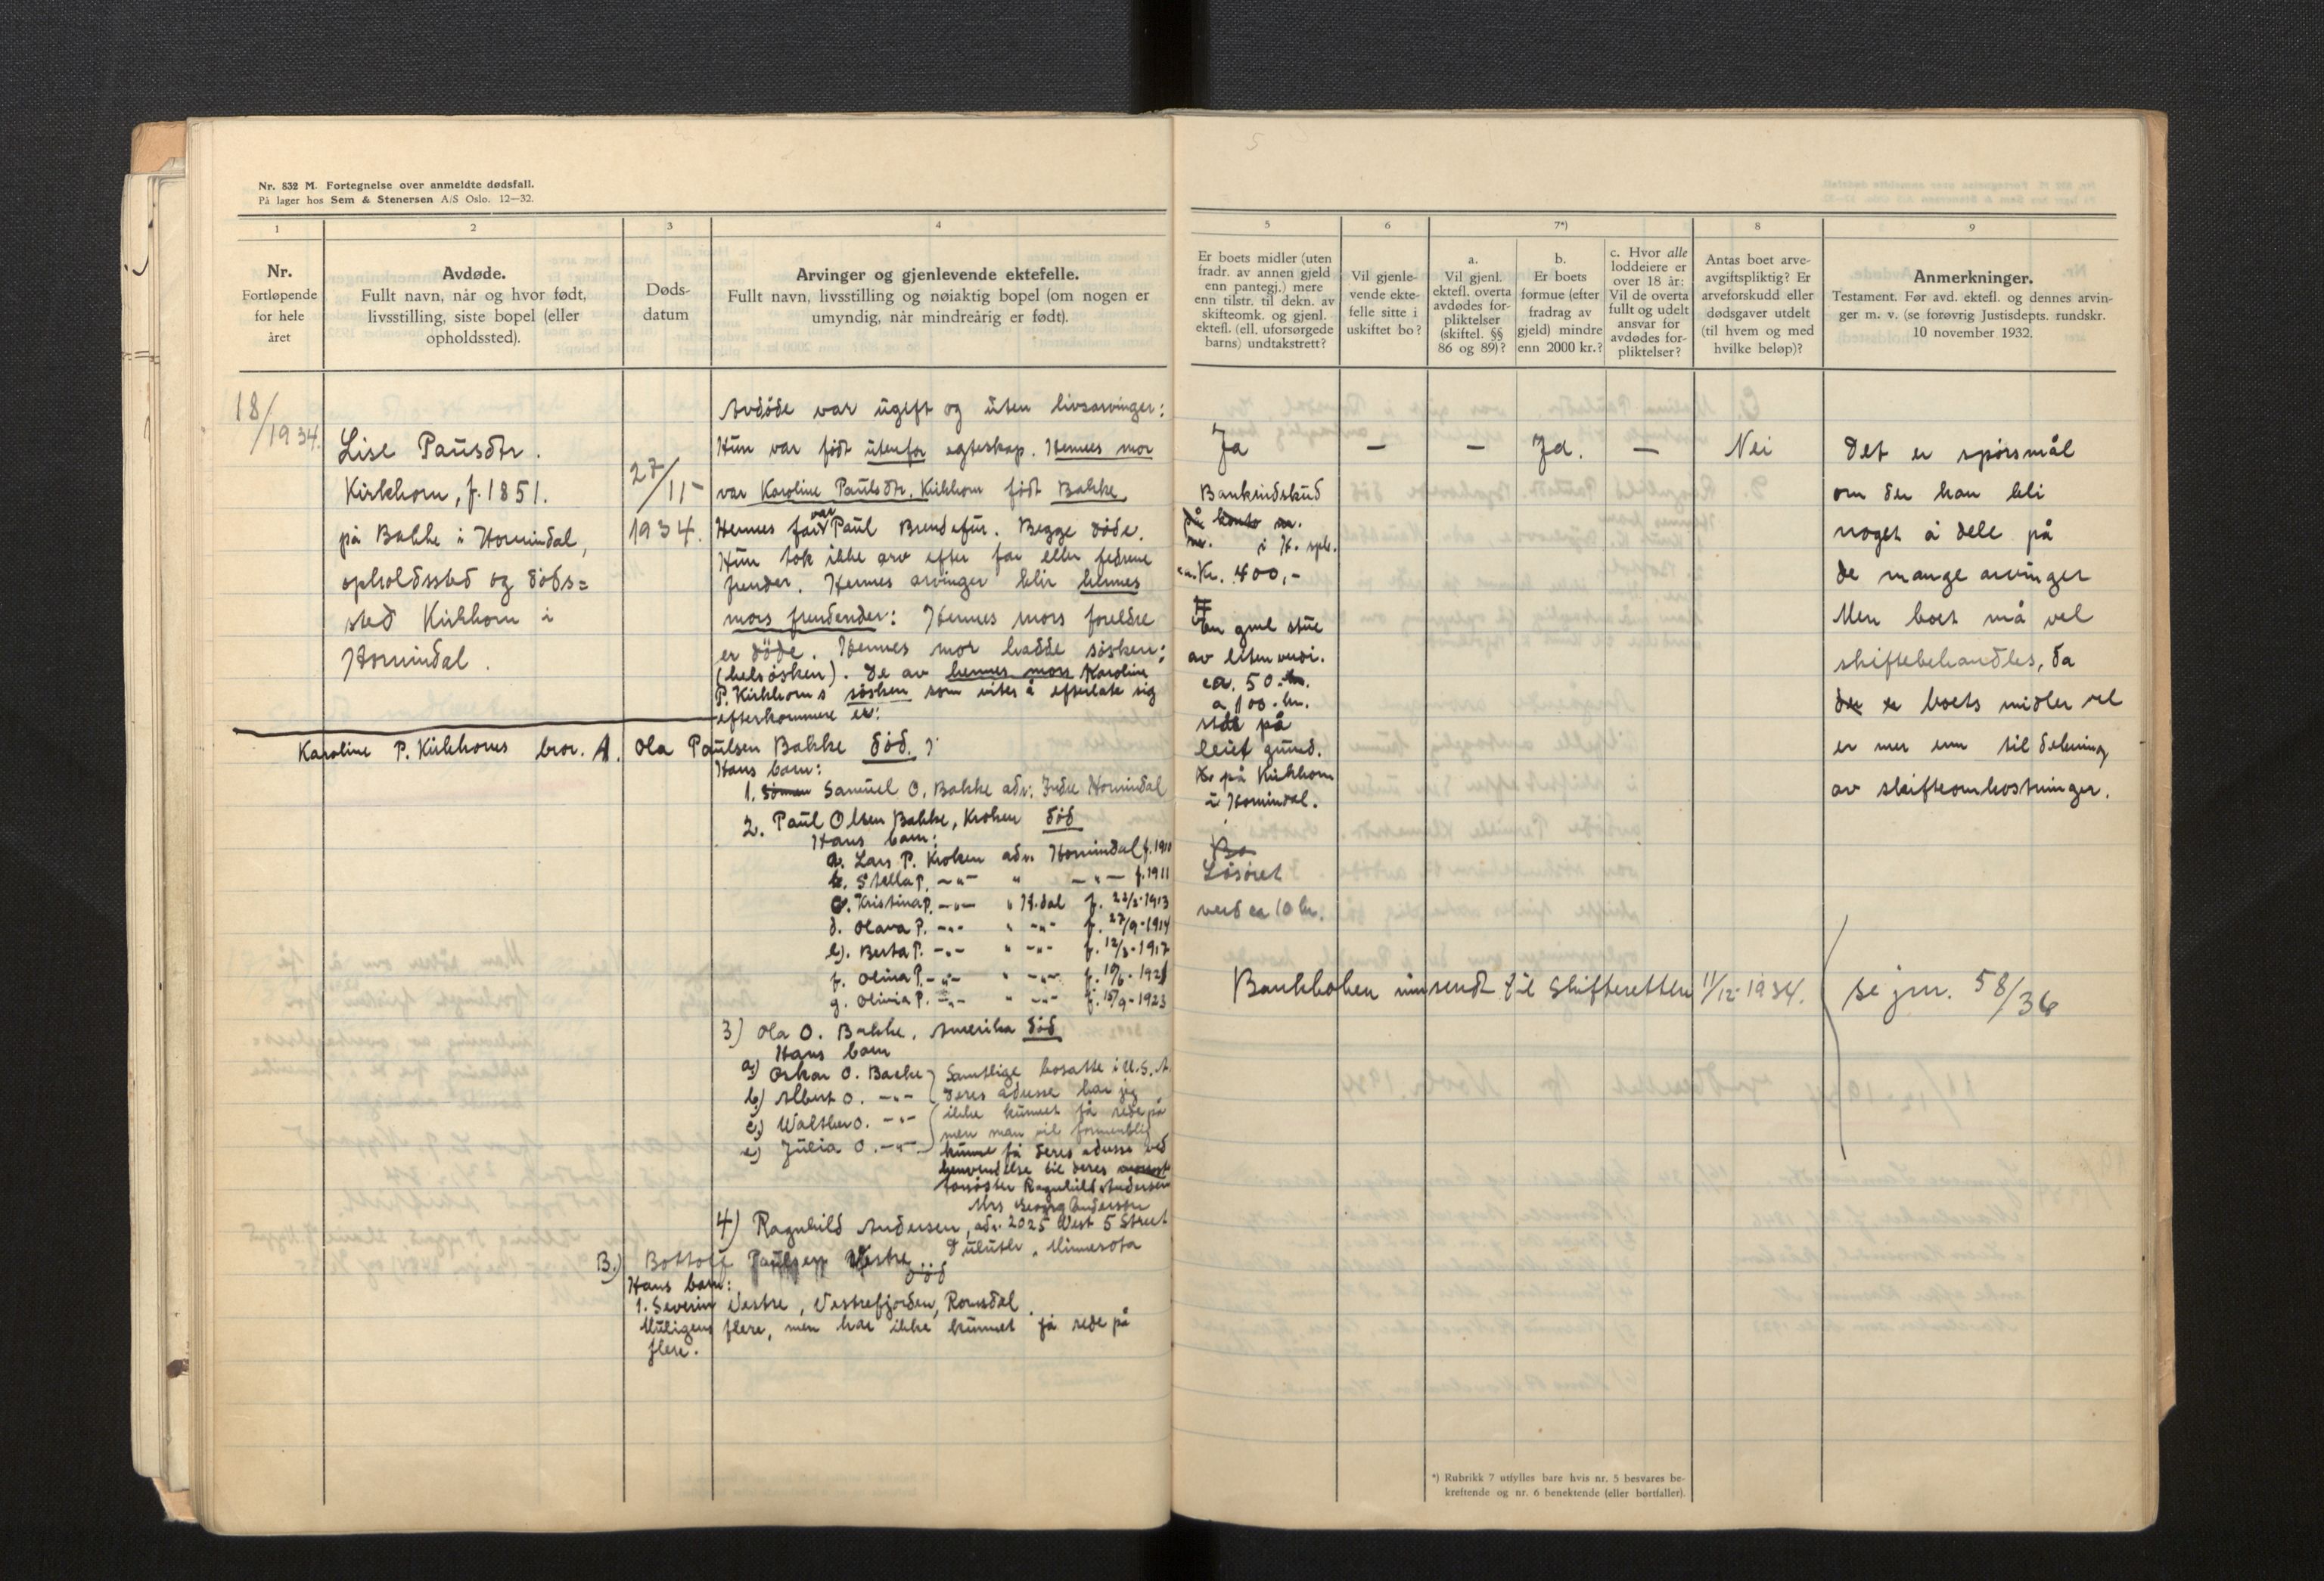 Nr. 832 M. Fortegnelse over anmeldte dødsfall.
På lager hos Sem & Stenersen A/S Oslo. 12—32.
1
2
3
4
Nr.
Fortløpende
for hele
året
Avdøde.
Fullt navn, når og hvor født,
livsstilling, siste bopel (eller
opholdssted).
Døds-
datum
Arvinger og gjenlevende ektefelle.
Fullt navn, livsstilling og nøiaktig bopel (om nogen er
umyndig, når mindreårig er født).
18/
/1934.
Lise Paulsdtr.
Kirkhorn, f. 1851.
på Bakke i Hornindal,
opholdssted og døds=
sted Kirkhorn i
Hornindal.
27/
/11-
1934.
Avdøde var ugift og uten livsarvinger:
Hun var født utenfor egteskap. Hennes mor
var Karoline Paulsdtr. Kirkhorn født Bakke
Hennes far var Paul Brendefur. Begge døde.
Hun tok ikke arv efter far eller fedrene
frender. Hennes arvinger blir hennes
mors frendender: Hennes mors foreldre
er døde. Hennes mor hadde søsken:
(helsøsken). De av hennes mors Karoline
P. Kirkhorns søsken som vites å efterlate sig
efterkommere er:
Karoline P. Kirkhorns bror. A. Ola Paulsen Bakke død.
Hans barn:
1. Samuel O. Bakke adr: Indre Hornindal
2. Paul Olsen Bakke, Kroken død
Hans barn:
a. Lars P. Kroken adr. Hornindal f. 1910
b. Stella P. -"- " -"- f. 1911
c. Kristina P. -"- " H.dal f. 22/2-1913
d. Olava P. -"- " -"- f. 27/9-1914
e). Berta P. -"- " -"- f. 12/3-1917
f. Olina P. -"- " -"- f. 10/6-1921
g. Olivia P. -"- " -"- f. 15/9-1923
3) Ola O. Bakke, Amerika død
Hans barn
a) Oskar O. Bakke
b) Albert O. -"-
c) Walther O. -"-
e) Julia O. -"-
Samtlige bosatte i U.S.A.
Deres adresse har jeg
ikke kunnet få rede på
men man vil formentlig
kunne få deres adresse ved
henvendelse til deres
farsøster Ragnhild Andersen
Mrs Georg Anderson
4) Ragnhild Andersen, adr. 2025 West 5 Street
Duluth, Minnesota
B.) Bottolf Paulsen Vestre død
Hans barn:
1. Severin Vestre, Vestrefjorden, Romsdal.
Muligens flere, men har ikke kunnet få rede på
flere.
5
6
7*)
8
9
Er boets midler (uten
fradr. av annen gjeld
enn pantegj.) mere
enn tilstr. til dekn. av
skifteomk. og gjenl.
ektefl. (ell. uforsørgede
barns) undtakstrett?
Vil gjenle-
vende ekte-
felle sitte i
uskiftet bo?
a.
Vil gjenl.
ektefl. overta
avdødes for-
pliktelser
(skiftel. §§
86 og 89)?
b.
Er boets
formue (efter
fradrag av
gjeld) mindre
enn 2000 kr.?
c. Hvor alle
loddeiere er
over 18 år:
Vil de overta
fullt og udelt
ansvar for
avdødes for-
pliktelser?
Antas boet arve-
avgiftspliktig? Er
arveforskudd eller
dødsgaver utdelt
(til hvem og med
hvilke beløp)?
Anmerkninger.
Testament. Før avd. ektefl. og dennes arvin-
ger m. v. (se forøvrig Justisdepts. rundskr.
10 november 1932.
Ja
—
—
Ja.
—
Nei
Bankindskud
på konto
i H. spb.
Kr. 400,-
En gml stue
av liten verdi.
ca. 50.
a 100.kr.
på
leiet grund.
på Kirkhorn
i Hornindal.
Løsøret
verd ca 10 kr.
Det er spørsmål
om der kan bli
noget å dele på
de mange arvinger
Men boet må vel
skiftebehandles, da
boets midler vel
er mer enn til dekning
av skifteomkostninger.
Bankboken innsendt til Skifteretten 11/12-1934.
se jnr. 58/36
*) Rubrikk 7 utfylles bare hvis nr. 5 besvares be-
kreftende og nr. 6 benektende (eller bortfaller).